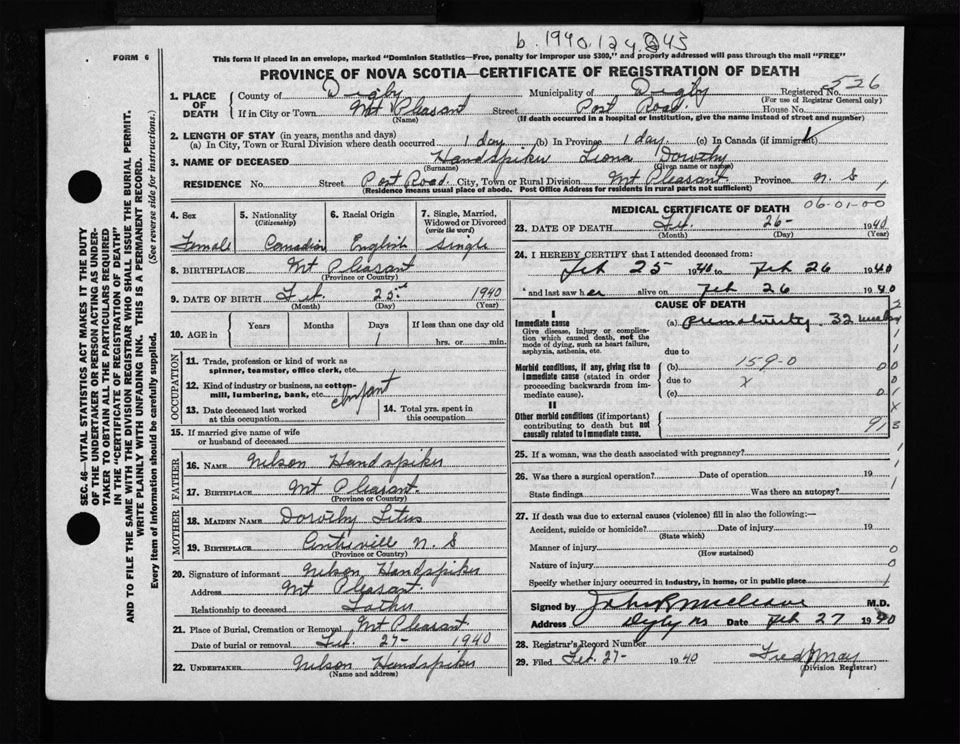 b. 1940.124.843
FORM 6
This form if placed in an envelope, marked "Dominion Statistics—Free, penalty for improper use $300," and properly addressed will pass through the mail "FREE"
PROVINCE OF NOVA SCOTIA—CERTIFICATE OF REGISTRATION OF DEATH
SEC. 46—VITAL STATISTICS ACT MAKES IT THE DUTY
OF THE UNDERTAKER OR PERSON ACTING AS UNDER-
TAKER TO OBTAIN ALL THE PARTICULARS REQUIRED
IN THE "CERTIFICATE OF REGISTRATION OF DEATH" AND TO FILE THE SAME WITH THE DIVISION REGISTRAR WHO SHALL ISSUE THE BURIAL PERMIT.
WRITE PLAINLY WITH UNFADING INK. THIS IS A PERMANENT RECORD.
Every item of information should be carefully supplied. (See reverse side for instructions.)
1. PLACE OF DEATH
County of Digby Municipality of Digby Registered No. 526
(For use of Registrar General only)
If in City or Town Mt Pleasant Street Post Road. House No.
(Name) (If death occurred in a hospital or institution, give the name instead of street and number)
2. LENGTH OF STAY (in years, months and days)
(a) In City, Town or Rural Division where death occurred 1 day (b) In Province 1 day. (c) In Canada (if immigrant)
3. NAME OF DECEASED Handspiker Liona Dorothy
(Surname) (Given name or names)
RESIDENCE No. Street Post Road. City, Town or Rural Division Mt Pleasant. Province N. S
(Residence means usual place of abode. Post Office Address for residents in rural parts not sufficient)
4. Sex
Female
5. Nationality
(Citizenship)
Canadian
6. Racial Origin
English
7. Single, Married,
Widowed or Divorced
(write the word)
Single
8. BIRTHPLACE Mt Pleasant
(Province or Country)
9. DATE OF BIRTH Feb. 25 1940
(Month) (Day) (Year)
10. AGE in Years Months Days 1 If less than one day old
hrs. or min.
OCCUPATION
11. Trade, profession or kind of work as
spinner, teamster, office clerk, etc.
12. Kind of industry or business, as cotton-
mill, lumbering, bank, etc. Infant
13. Date deceased last worked
at this occupation
14. Total yrs. spent in
this occupation
15. If married give name of wife
or husband of deceased
FATHER
16. NAME Nelson Handspiker
17. BIRTHPLACE Mt Pleasant.
(Province or Country)
MOTHER
18. MAIDEN NAME Dorothy Titus
19. BIRTHPLACE Centreville N. S
(Province or Country)
20. Signature of informant Nelson Handspiker
Address Mt Pleasant.
Relationship to deceased Father
21. Place of Burial, Cremation or Removal Mt Pleasant
Date of burial or removal Feb. 27- 1940
22. UNDERTAKER Nelson Handspiker
(Name and address)
MEDICAL CERTIFICATE OF DEATH 06-01-00
23. DATE OF DEATH Feb. 26- 1940
(Month) (Day) (Year)
24. I HEREBY CERTIFY that I attended deceased from:
Feb 25 1940 to Feb 26 1940
and last saw her alive on Feb 26 1940
CAUSE OF DEATH
I
Immediate cause
Give disease, injury or complica-
tion which caused death, not the
mode of dying, such as heart failure,
asphyxia, asthenia, etc.
(a) Prematurity 32 weeks
due to
Morbid conditions, if any, giving rise to
immediate cause (stated in order
proceeding backwards from im-
mediate cause).
(b) 159-0
due to
(c)
II
Other morbid conditions (if important)
contributing to death but not
causally related to immediate cause.
25. If a woman, was the death associated with pregnancy?
26. Was there a surgical operation? Date of operation 19
State findings Was there an autopsy?
27. If death was due to external causes (violence) fill in also the following:—
Accident, suicide or homicide? Date of injury 19
(State which)
Manner of injury
(How sustained)
Nature of injury
Specify whether injury occurred in industry, in home, or in public place
Signed by M.D.
Address Digby NS Date Feb 27 1940
28. Registrar's Record Number
29. Filed Feb. 27- 1940 Fred J May
(Division Registrar)